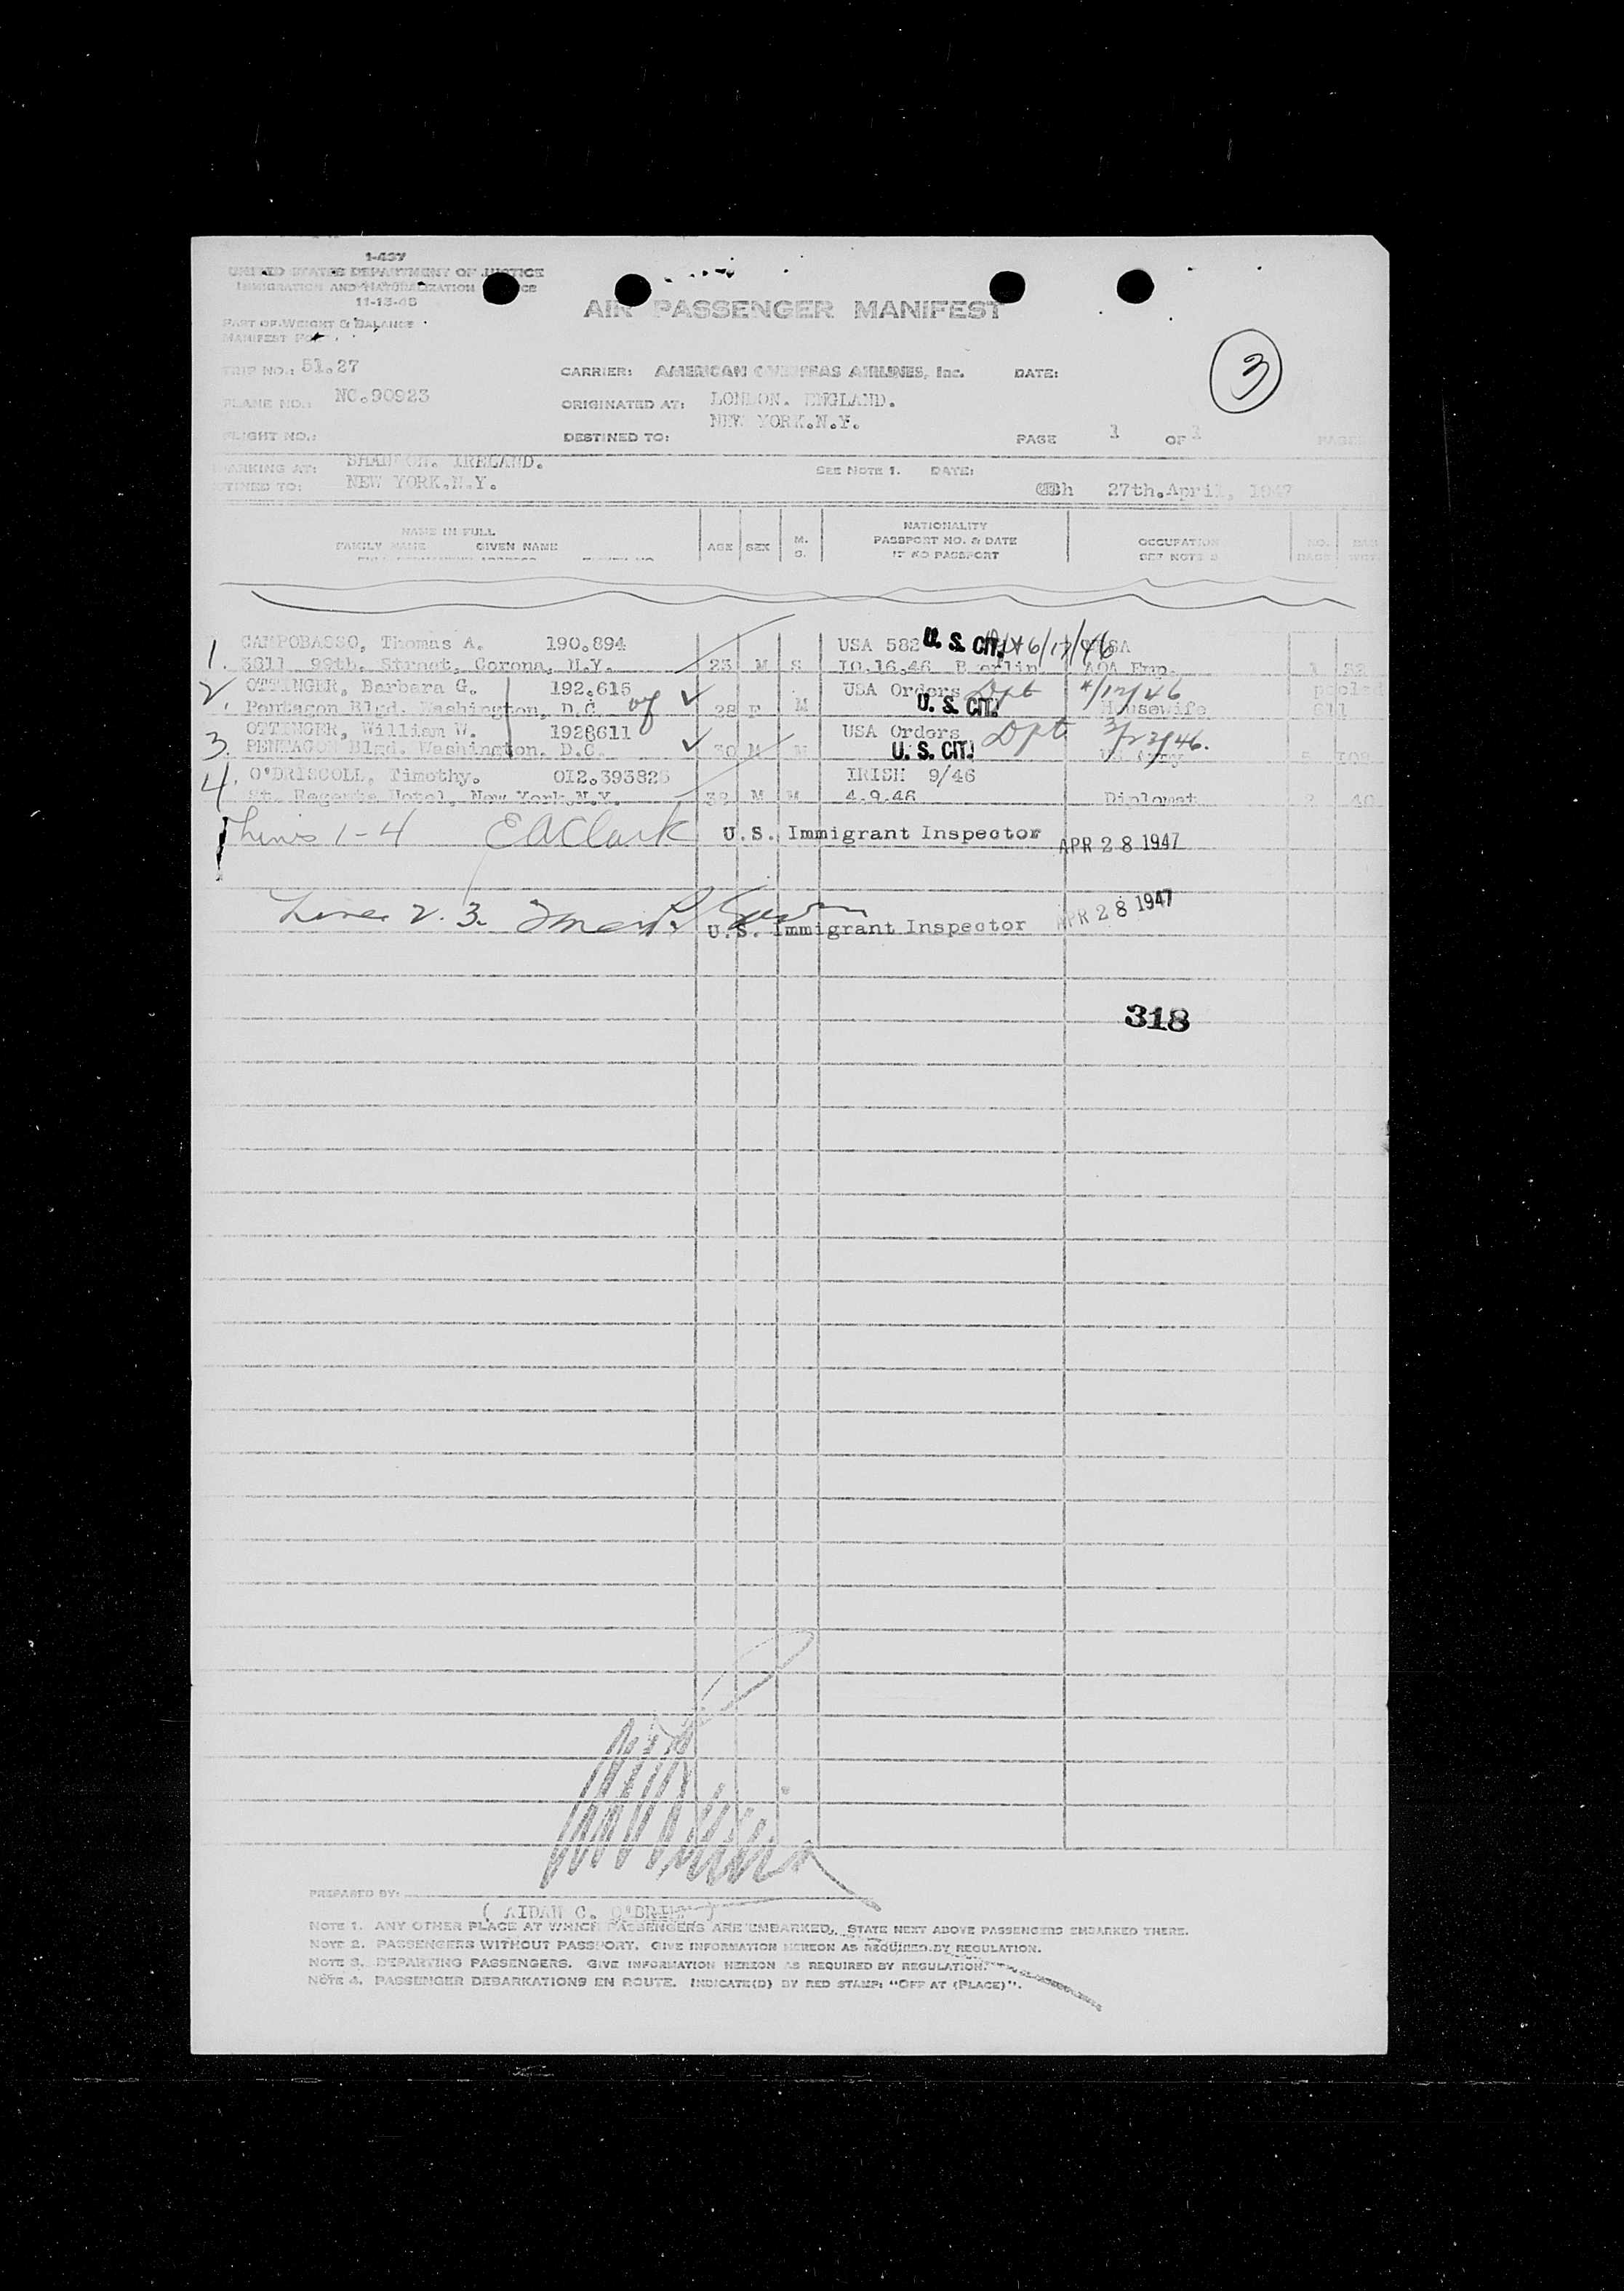 1-437
UNITED STATES DEPARTMENT OF JUSTICE
IMMIGRATION AND NATURALIZATION
11-13-45
AIR PASSENGER MANIFEST
PART OF WEIGHT & BALANCE
MANIFEST
3
TRIP NO.: 51.27
CARRIER: AMERICAN OVERSEAS AIRLINES, Inc. DATE:
PLANE NO.: NC.90923
ORIGINATED AT: LONDON. ENGLAND.
FLIGHT NO.: DESTINED TO: NEW YORK.N.Y. PAGE 1 OF 1 PAGES
ARKING AT: SHANNON. IRELAND. SEE NOTE 1. DATE:
TINED TO: NEW YORK.N.Y. 27th.April, 1947
NAME IN FULL
FAMILY NAME GIVEN NAME
AGE SEX M. S.
NATIONALITY
PASSPORT NO. & DATE
IF NO PASSPORT
OCCUPATION
SEE NOTE
1. CAMPOBASSO, Thomas A. 190.894 USA 582 U. S. CIT. 6/17/46
3811 99th. Street, Corona, N.Y. 23 M S 10.16.46 Berlin AOA Emp. 1 32
2. OTTINGER, Barbara G. 192.615 USA Orders Dpt 4/12/46
Pentagon Blgd. Washington, D.C. 28 F M U. S. CIT. Housewife 611
3. OTTINGER, William W. 1928611 USA Orders Dpt 3/23/46.
PENTAGON Blgd. Washington. D.C. 30 M M U. S. CIT. 5 108
4. O'DRISCOLL, Timothy. OI2.393826 IRISH 9/46
St. Regents Hotel, New York.N.Y. 39 M M 4.9.46 Diplomat 2 40
Lines 1-4 E A Clark U.S. Immigrant Inspector APR 28 1947
Lines 2. 3. U.S. Immigrant Inspector APR 28 1947
318
PREPARED BY:
( AIDAN C. O'BRIEN )
NOTE 1. ANY OTHER PLACE AT WHICH PASSENGERS ARE EMBARKED, STATE NEXT ABOVE PASSENGERS EMBARKED THERE.
NOTE 2. PASSENGERS WITHOUT PASSPORT. GIVE INFORMATION HEREON AS REQUIRED BY REGULATION.
NOTE 3. DEPARTING PASSENGERS. GIVE INFORMATION HEREON AS REQUIRED BY REGULATION.
NOTE 4. PASSENGER DEBARKATIONS EN ROUTE. INDICATE(D) BY RED STAMP: "OFF AT (PLACE)".